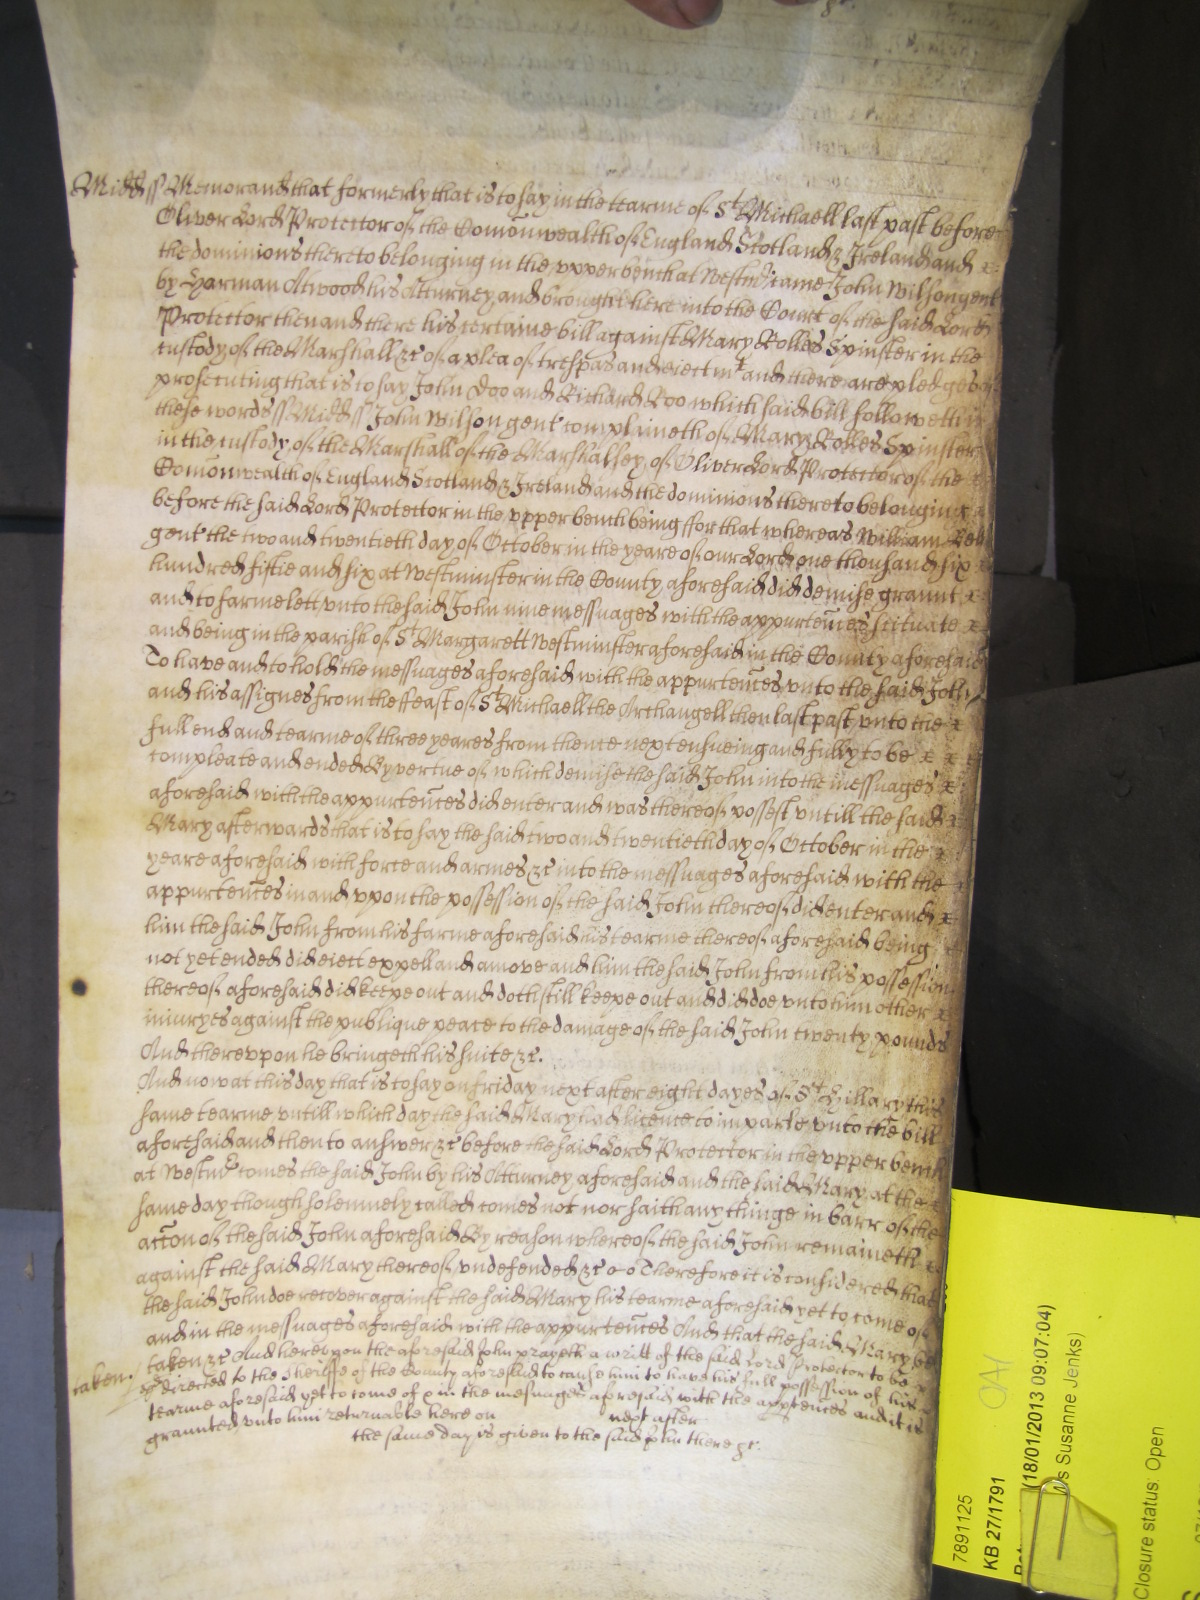 Midd ss Memorand that formerly that is to say in the tearme of St Michaell last past before
Oliver Lord Protector of the Comonwealth of England Scotland & Ireland and
the dominions thereto belonging in the upper bench at Westmr came John Wilson gent
by Harman Atwood his Atturney and brought here into the Court of the said Lord
Protector then and there his certaine bill against Mary Rolles Spinster in the
custody of the Marshall &c of a plea of trespas and eiectmt and there are pledges of
prosecuting that is to say John Doo and Richard Roo which said bill followeth in
these words ss Midd ss John Wilson gent complaineth of Mary Rolles Spinster
in the custody of the Marshall of the Marshalsey of Oliver Lord Protector of the
Comonwealth of England Scotland & Ireland and the dominions thereto belonging
before the said Lord Protector in the upper bench being ffor that whereas William
gent the two and twentieth day of October in the yeare of our Lord one thousand six
hundred fiftie and six at Westminster in the County aforesaid did demise graunt
and to farme lett unto the said John nine messuages with the appurtences scituate
and being in the parish of St Margarett Westminster aforesaid in the County aforesaid
To have and to hold the messuages aforesaid with the appurtences unto the said John
and his assignes from the ffeast of St Michaell the Archangell then last past unto the
full end and tearme of three yeares from thence next ensueing and fully to be
compleate and ended By vertue of which demise the said John into the messuages
aforesaid with the appurtences did enter and was thereof possest untill the said
Mary afterwards that is to say the said two and twentieth day of October in the
yeare aforesaid with force and armes &c into the messuages aforesaid with the
appurtences in and upon the possession of the said John thereof did enter and
him the said John from his farme aforesaid his tearme thereof aforesaid being
not yet ended did eiect expell and amove and him the said John from his possession
thereof aforesaid did keepe out and doth still keepe out and did doe unto him other
iniuryes against the publique peace to the damage of the said John twenty pounds
And thereupon he bringeth his suite &c.
And now at this day that is to say on Friday next after eight dayes of St Hillary this
same tearme untill which day the said Mary had licence to imparle unto the bill
aforesaid and then to answer &c before the said Lord Protector in the upper bench
at Westmr comes the said John by his Atturney aforesaid and the said Mary at the
same day though solemnely called comes not nor saith any thinge in barr of the
accon of the said John aforesaid By reason whereof the said John remaineth
against the said Mary thereof undefended &c Therefore it is considered that
the said John doe recover against the said Mary his tearme aforesaid yet to come of
and in the messuages aforesaid with the appurtences And that the said Mary be
taken &c And hereupon the aforesaid John prayeth a writt of the said Lord Protector to be
taken. directed to the Sheriffe of the County aforesaid to cause him to have his full possession of his
tearme aforesaid yet to come of & in the messuages aforesaid with the apptences and it is
graunted unto him returnable here on next after
the same day is given to the said John there &c.
7891125
KB 27/1791
(18/01/2013 09:07:04)
s Susanne Jenks)
Closure status: Open